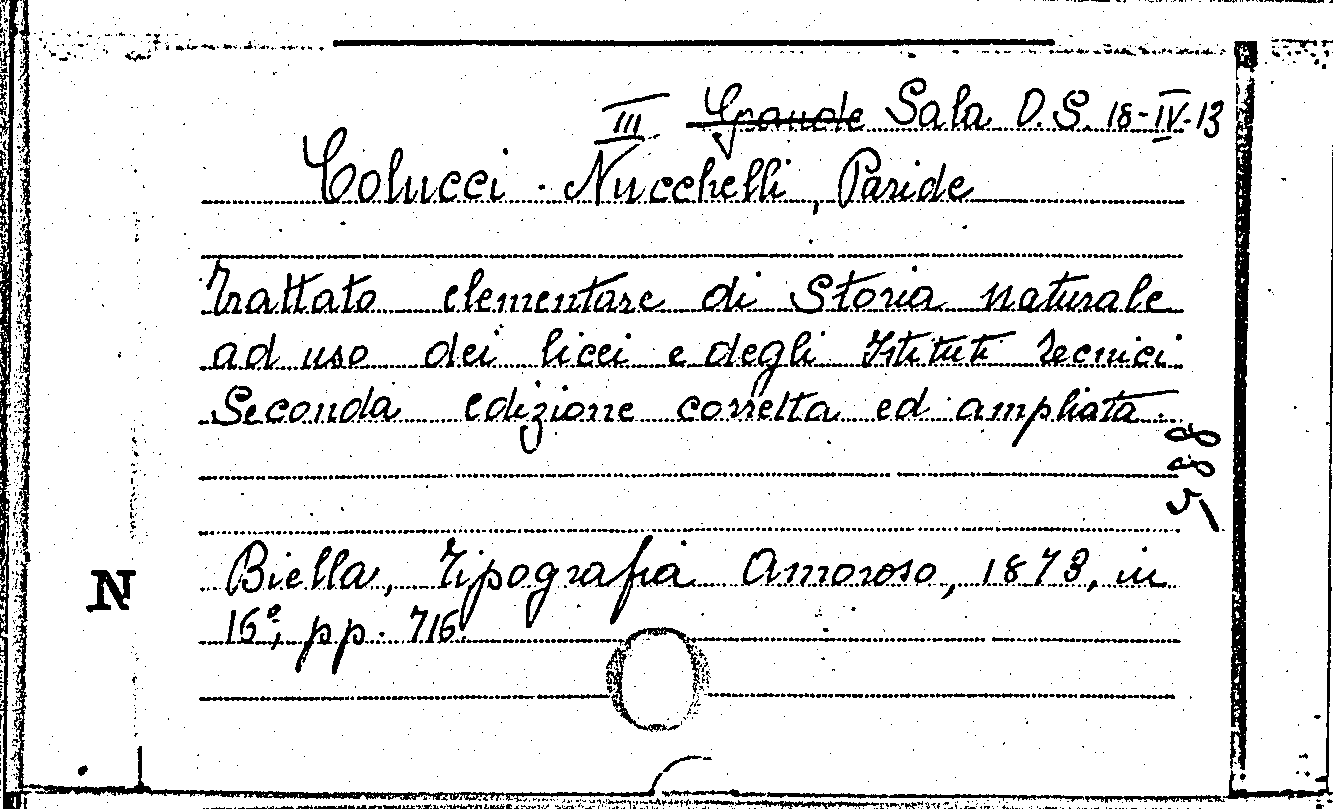 III Grande Sala D.S. 18-IV-13
Colucci - Nucchelli, Paride
Trattato elementare di Storia naturale
ad uso dei licei e degli Istituti Tecnici
Seconda edizione corretta ed ampliata.
588
Biella, Tipografia Amoroso, 1873, in
16°, pp. 716.
N